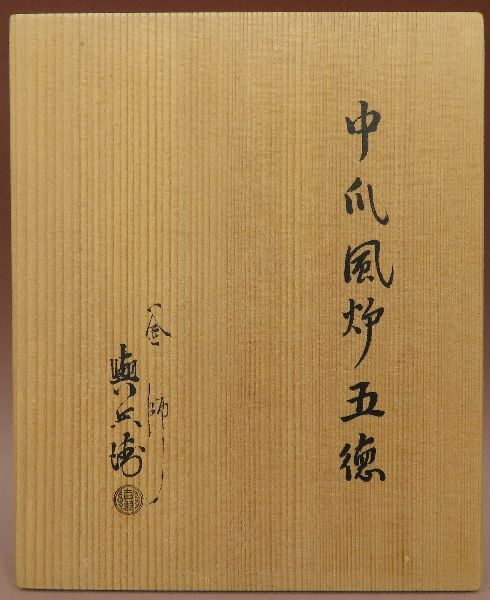 中爪風炉五徳
釜師
與兵衛